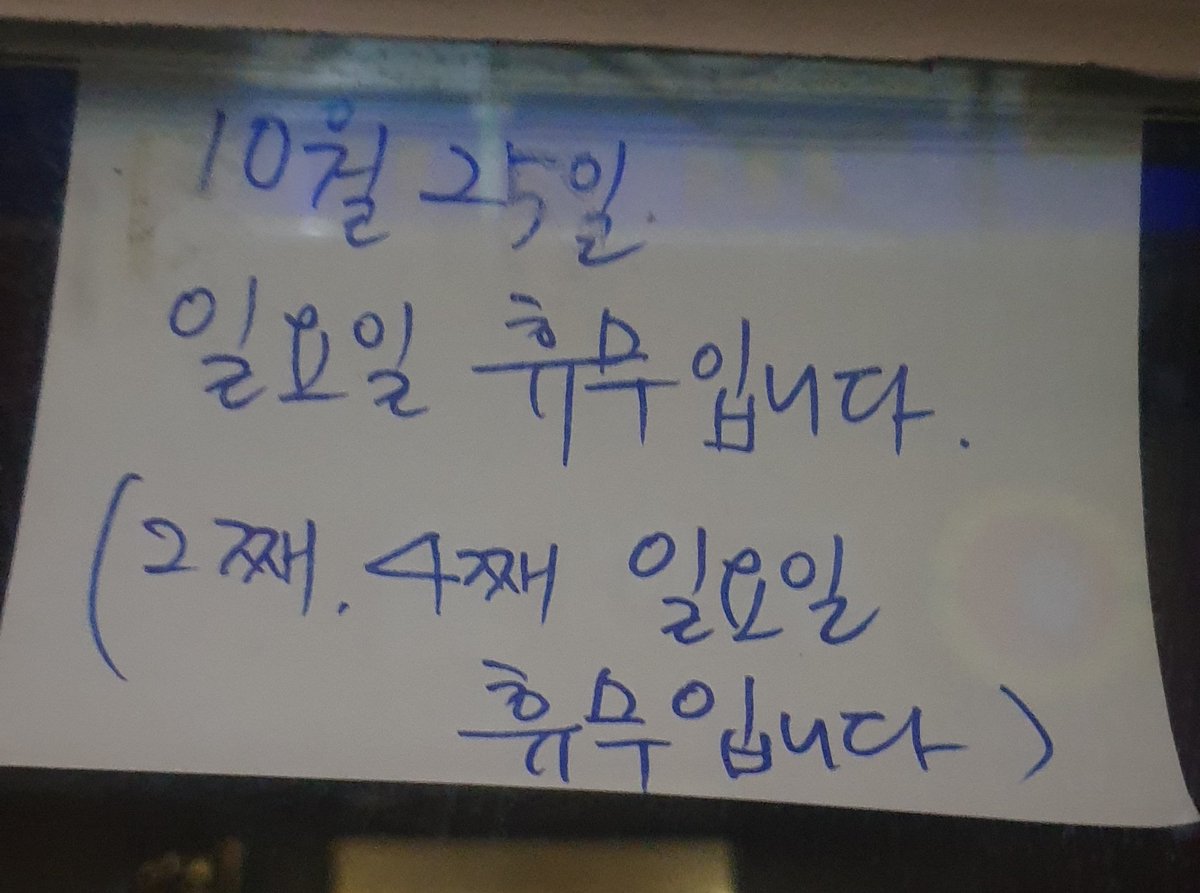 10월 25일.
일요일 휴무입니다.
(2째. 4째 일요일
휴무입니다)